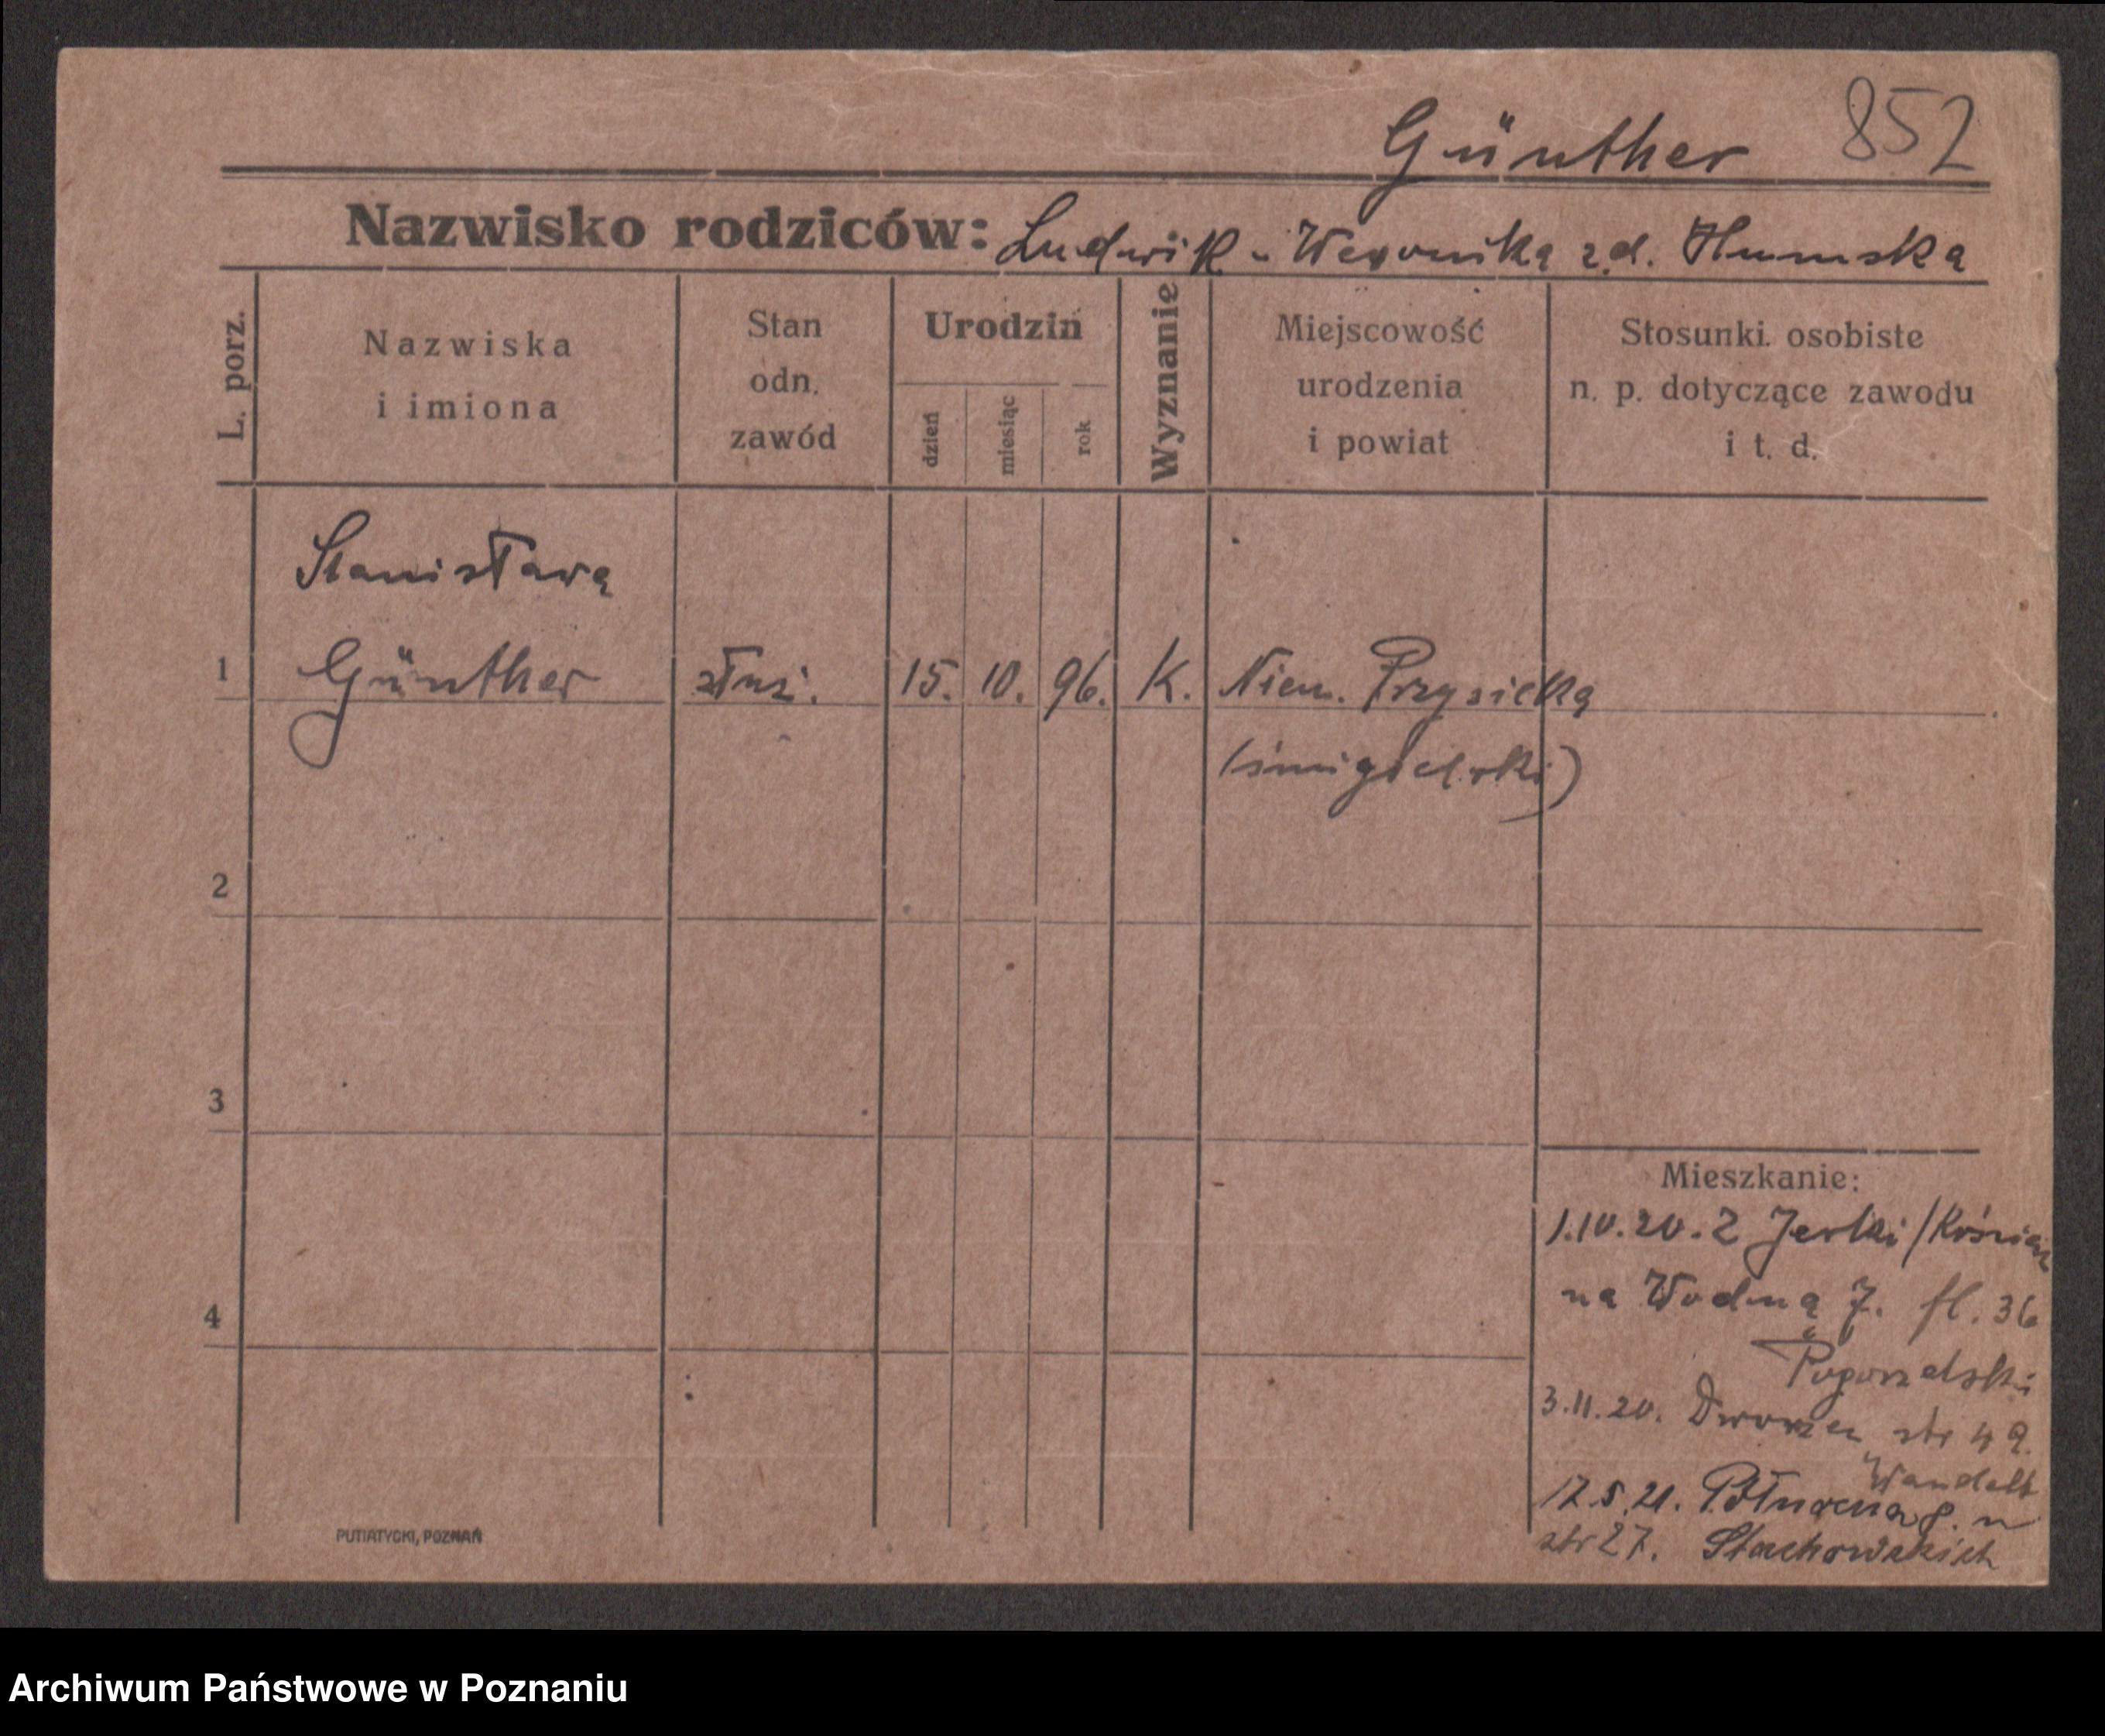 Günther 852
Nazwisko rodziców: Ludwik - Weronika z d. Humska
L. porz.
Nazwiska
i imiona
Stan
odn.
zawód
Urodzin
dzień
miesiąc
rok
Wyznanie
Miejscowość
urodzenia
i powiat
Stosunki. osobiste
n. p. dotyczące zawodu
i t. d.
Stanisława
1 Günther służ. 15. 10. 96. K. Niem. Przysieka
(śmigielski)
2
3
4
Mieszkanie:
1.10.20. z Jerki /Kościan
na Wodną 7. fl. 36
Pogorzelski
3.11.20. Dworzec str 49.
Wandelt
17.5.21. Północna 8. u
str 27. Stachowskich
PUTIATYCKI, POZNAŃ
Archiwum Państwowe w Poznaniu